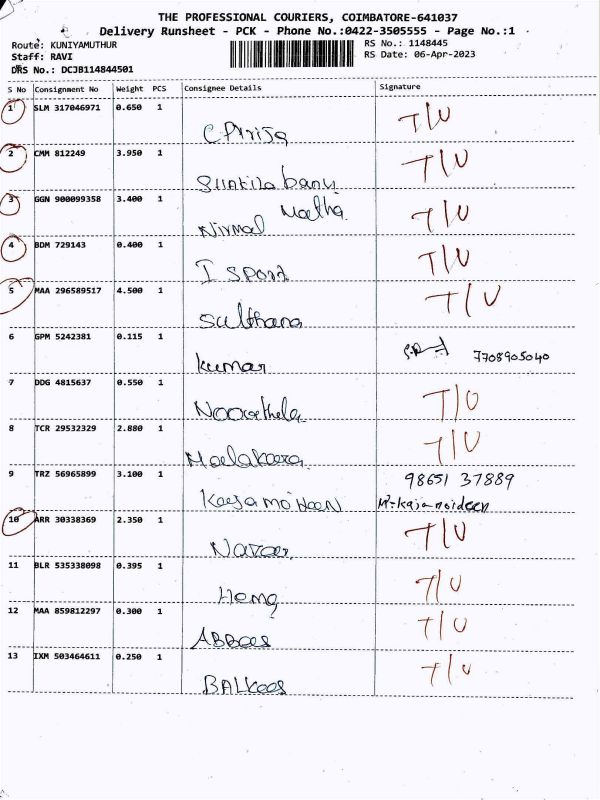 THE PROFESSIONAL COURIERS, COIMBATORE-641037
Delivery Runsheet - PCK - Phone No.:0422-3505555 - Page No.:1
Route: KUNIYAMUTHUR
RS No.: 1148445
Staff: RAVI
RS Date: 06-Apr-2023
DRS No.: DCJB114844501
S No Consignment No Weight PCS Consignee Details Signature
1 SLM 317046971 0.650 1 T/U
2 CMM 812249 3.950 1 T/U
banu
3 GGN 900099358 3.400 1 T/U
Nirmal
4 BDM 729143 0.400 1 T/U
I Sport
5 MAA 296589517 4.500 1 T/U
Sulthana
6 GPM 5242381 0.115 1 7708905040
kumar
7 DDG 4815637 0.550 1 T/U
8 TCR 29532329 2.880 1 T/U
9 TRZ 56965899 3.100 1 98651 37889
10 ARR 30338369 2.350 1 T/U
11 BLR 535338098 0.395 1 T/U
Hema
12 MAA 859812297 0.300 1 T/U
ABBAS
13 IXM 503464611 0.250 1 T/U